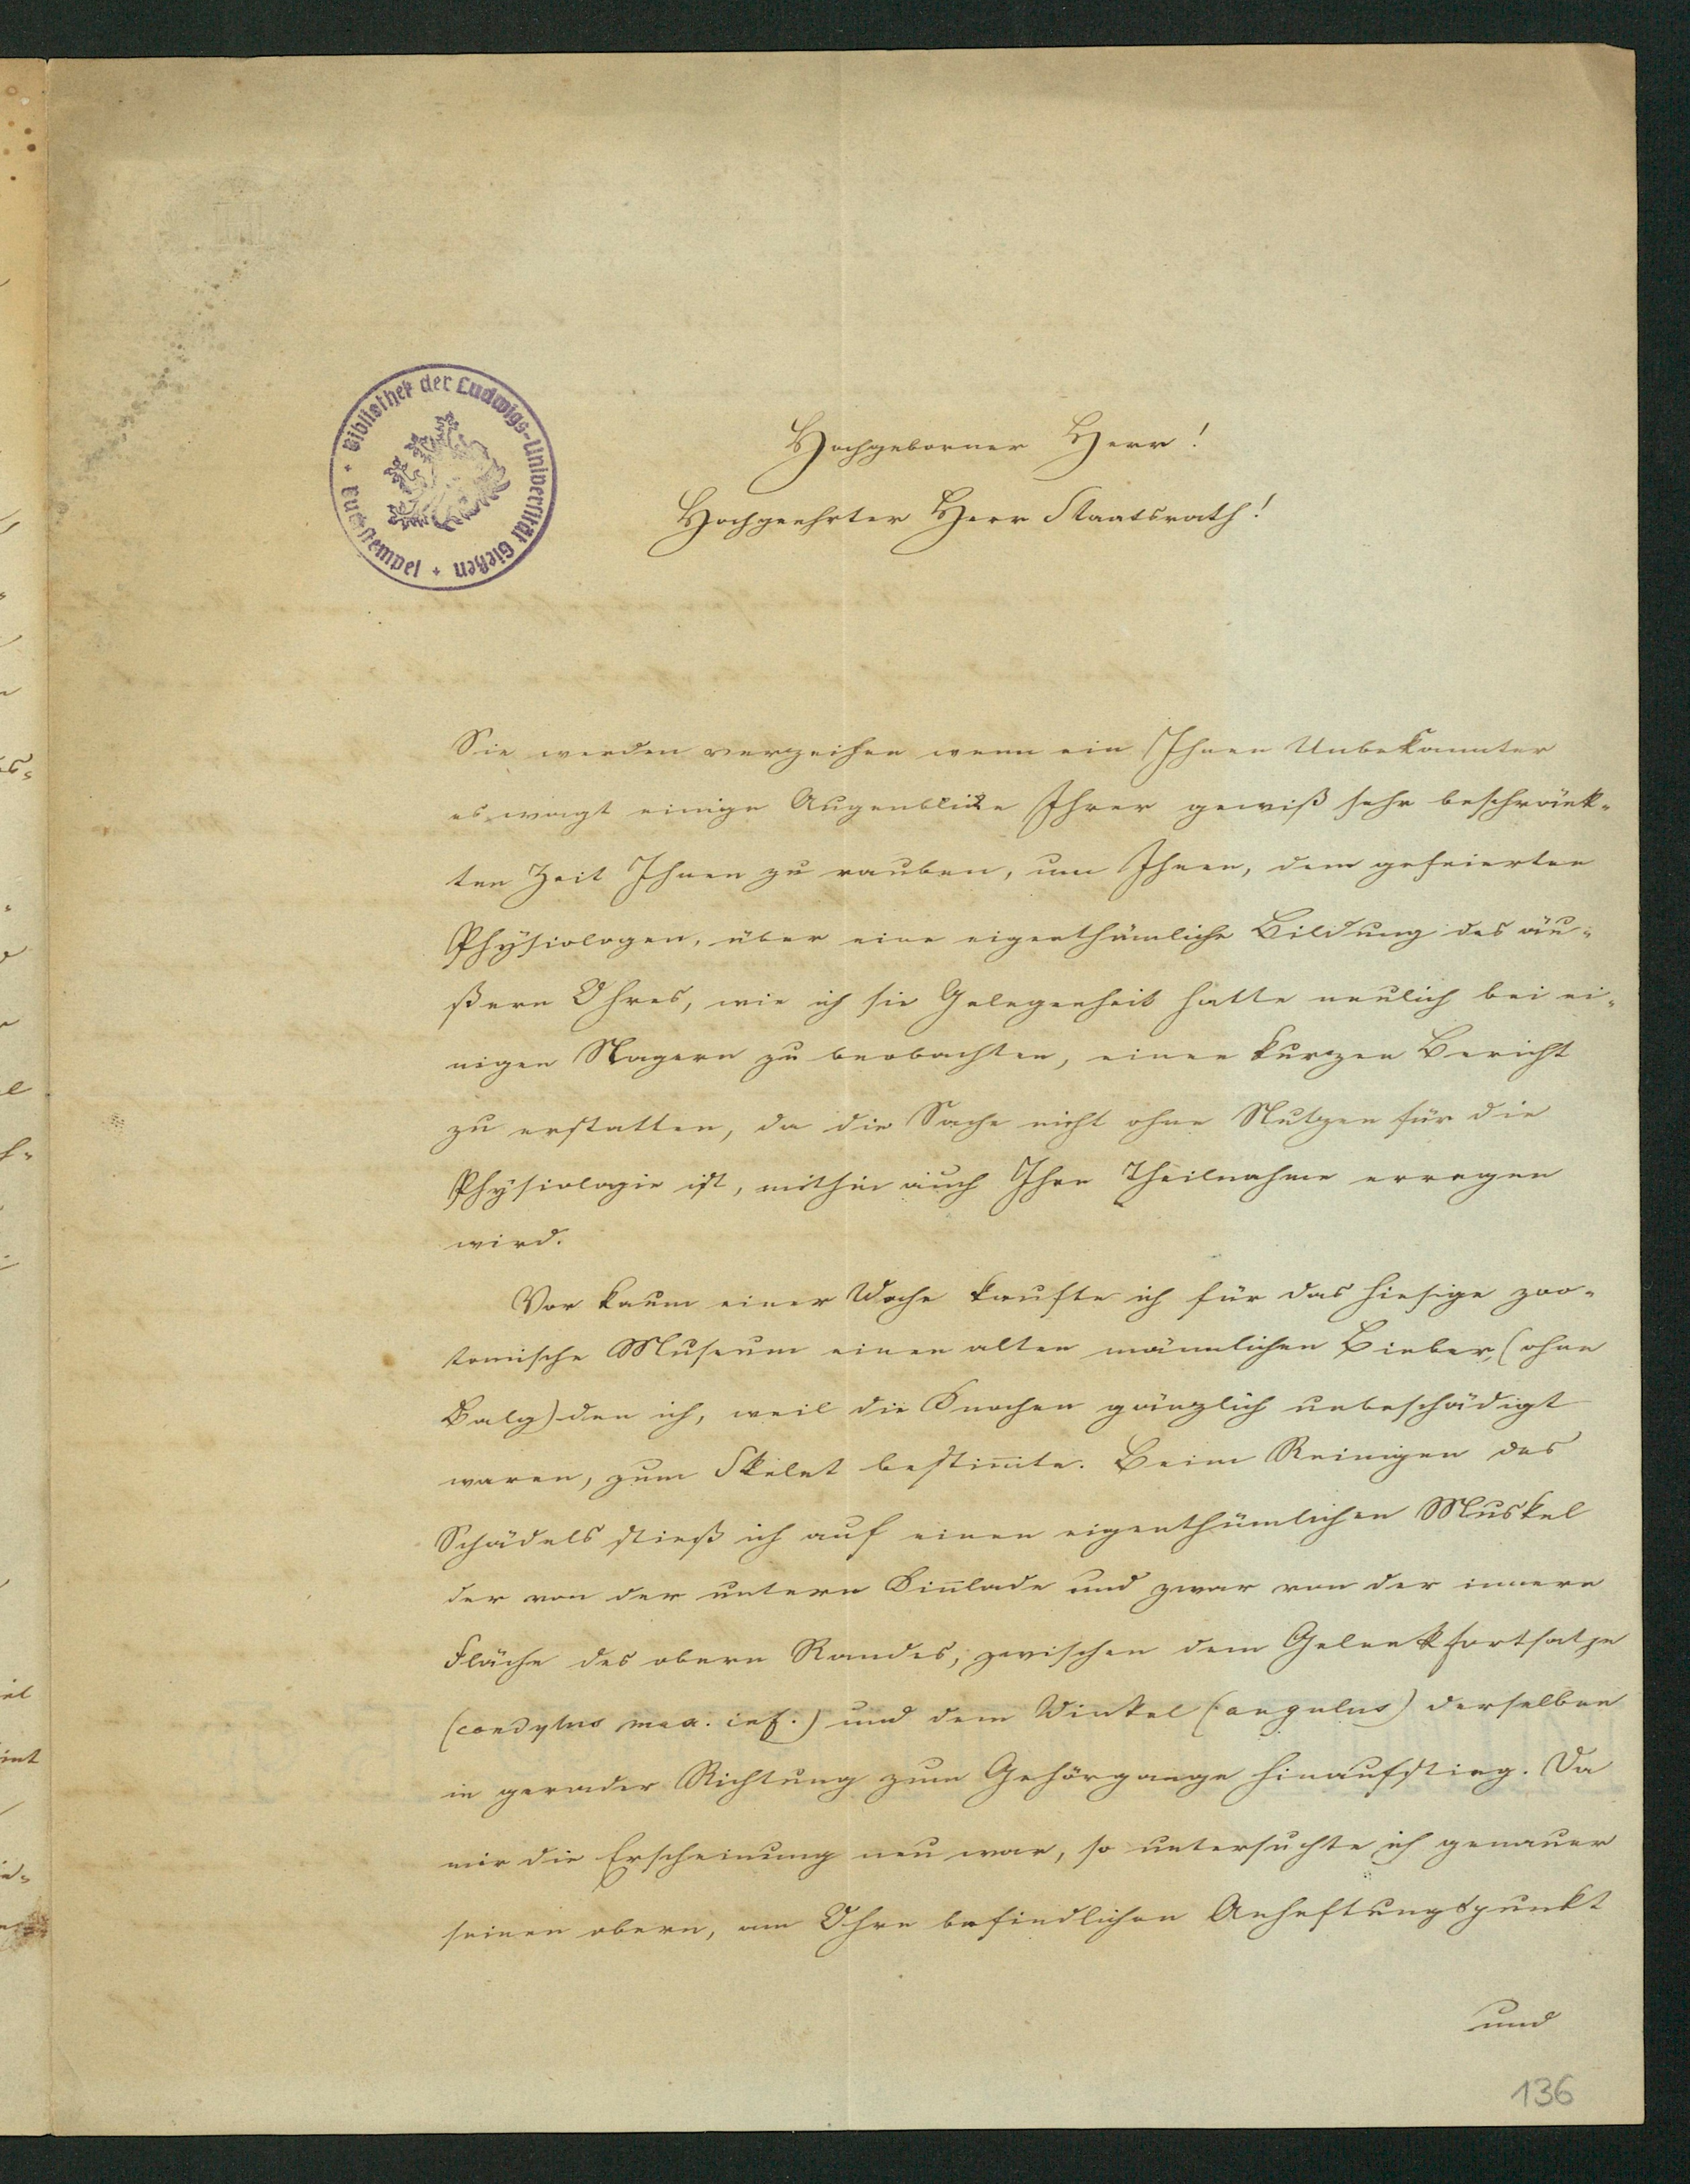 Bibliothek der Ludwigs-Universität Gießen
+ Buchstempel +
Hochgeborner Herr!
Hochgeehrter Herr Staatsrath!
Sie werden verzeihen wenn ein Ihnen Unbekannter
es wagt einige Augenblicke Ihrer gewiß sehr beschränk-
ten Zeit Ihnen zu rauben, um Ihnen, dem gefeierten
Physiologen, über eine eigenthümliche Bildung des äu-
ßern Ohres, wie ich sie Gelegenheit hatte neulich bei ei-
nigen Nagern zu beobachten, einen kurzen Bericht
zu erstatten, da die Sache nicht ohne Nutzen für die
Physiologie ist, mithin auch Ihre Theilnahme erregen
wird.
Vor kaum einer Woche kaufte ich für das hiesige zoo-
tomische Museum einen alten männlichen Bieber, (ohne
Balg) den ich, weil die Knochen gänzlich unbeschädigt
waren, zum Skelet bestim̄te. Beim Reinigen des
Schädels stieß ich auf einen eigenthümlichen Muskel
der von der untern Kin̄lade und zwar von der innern
Fläche des obern Randes, zwischen dem Gelenkfortsatze
(condylus max. inf.) und dem Winkel (angulus) derselben
in gerader Richtung zum Gehörgange hinaufstieg. Da
mir die Erscheinung neu war, so untersuchte ich genauer
seinen obern, am Ohre befindlichen Anheftungspunkt
und
136